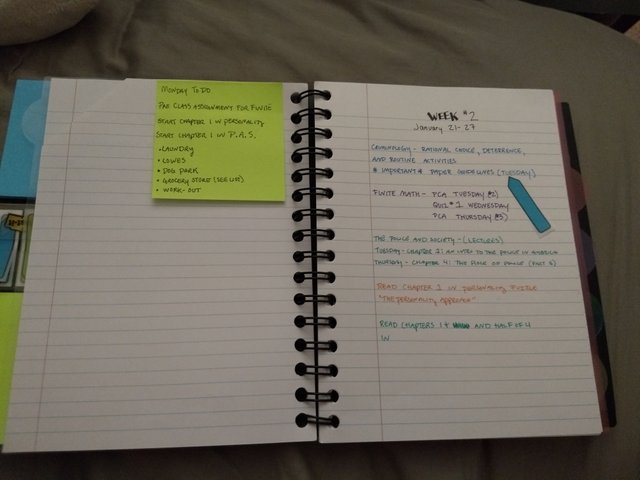 MONDAY TO DO
PRE CLASS ASSIGNMENT FOR FINITE
START CHAPTER 1 IN PERSONALITY
START CHAPTER 1 IN P.A.S.
• LAUNDRY
• LOWES
• DOG PARK
• GROCERY STORE (SEE LIST)
• WORK-OUT
WEEK #2
January 21-27
CRIMINOLOGY - RATIONAL CHOICE, DETERRENCE,
AND ROUTINE ACTIVITIES
* IMPORTANT * PAPER GUIDELINES (TUESDAY)
FINITE MATH - PCA TUESDAY #2)
QUIZ #1 WEDNESDAY
PCA THURSDAY #3)
THE POLICE AND SOCIETY - (LECTURES)
TUESDAY - CHAPTER 2: AN INTRO TO THE POLICE IN AMERICA
THURSDAY - CHAPTER 4: THE ROLE OF POLICE (PART 1)
READ CHAPTER 1 IN PERSONALITY PUZZLE
"THE PERSONALITY APPROACH"
READ CHAPTERS 1 + AND HALF OF 4
IN